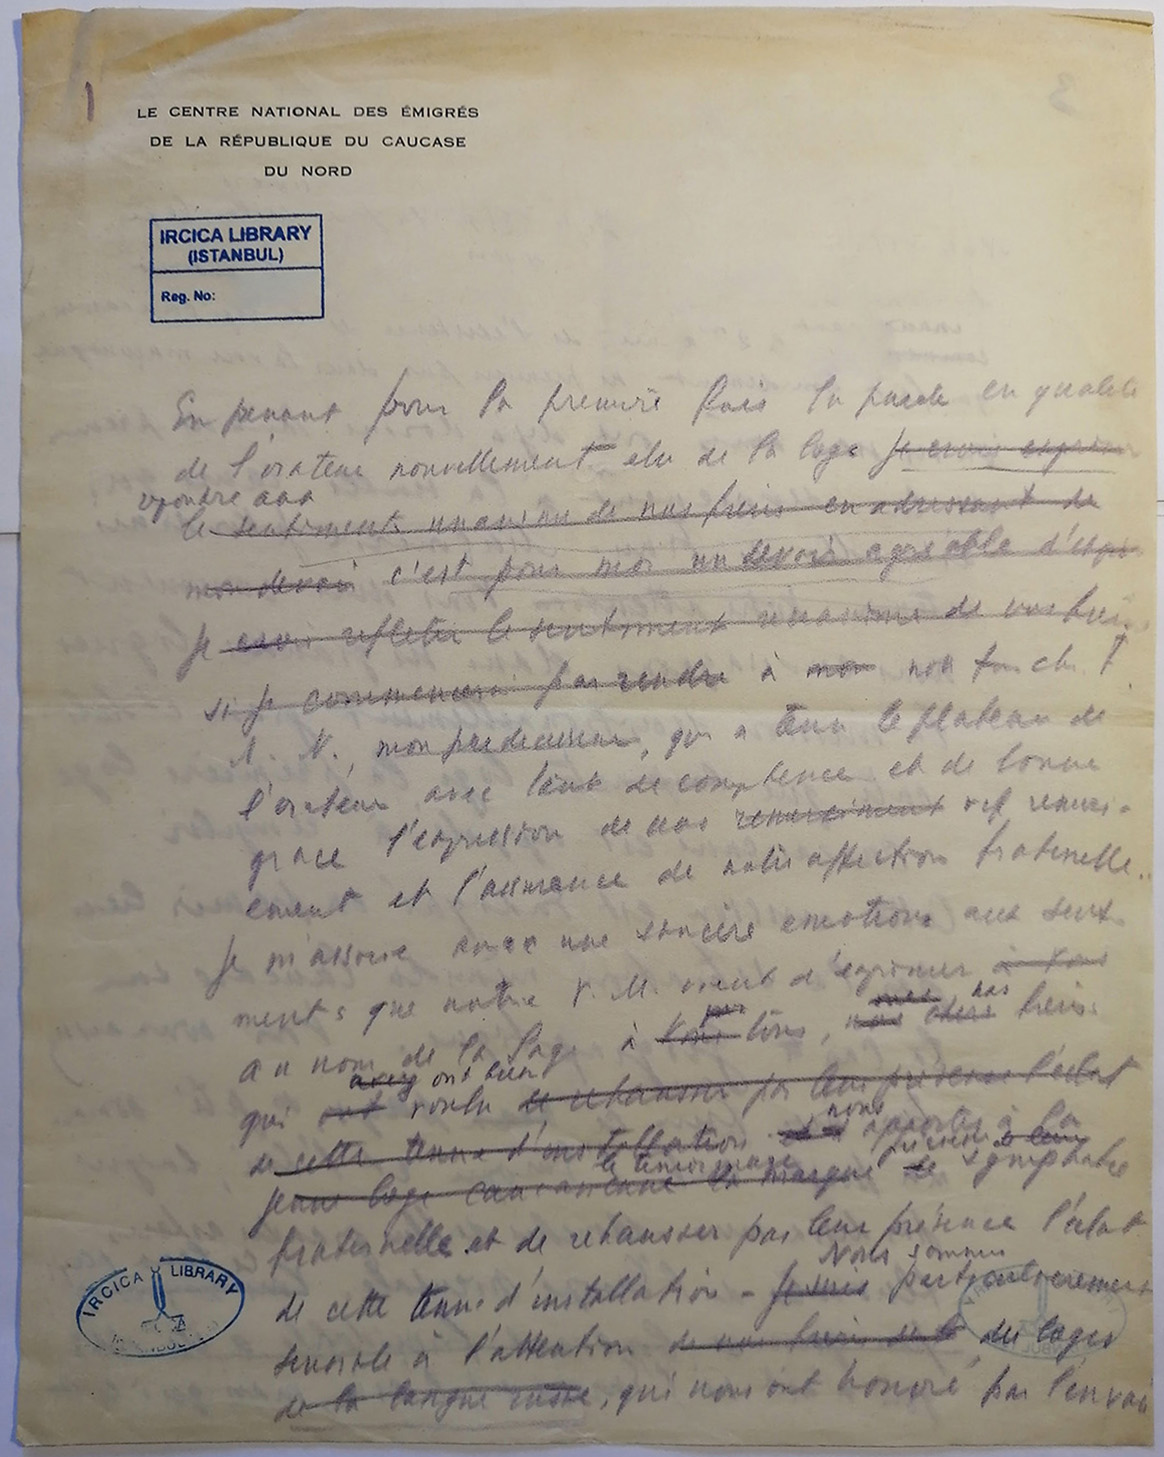 3
LE CENTRE NATIONAL DES ÉMIGRÉS
DE LA RÉPUBLIQUE DU CAUCASE
DU NORD
IRCICA LIBRARY
(ISTANBUL)
Reg. No:
En penant pour la premire fois la parole en qualité
de l'orateur nouvellement elu de la loge je crois exprimer
le sentiments unanime de nos frères en adressant de
mon devoir c'est pour moi un devoir agreable
Je crois refleter le sentiment unanime de nos
si je commencerai par rendre à mon
N. mon predecesseur, qui a tenu le plateau de
l'orateur avec tant de comptence et de bonne
grace l'expression de nos remerciment vif remerci-
ement et l'assurance de notre affection fraternelle.
Je m'associe avec une sincère emotion aux senti
ments que notre V. M. vient d'exprimer
au nom de la loge à tous, nos frères
avez ont bien
qui ont voulu de rehausser par leur présence l'éclat
de cette tenue d'installation nous apporter à la
jeune loge caucasienne la marque de sympathie
le temoignage
fraternelle et de rehausser par leur présence l'éclat
Nous sommes
de cette tenue d'installation - Je suis particulierement
sensible à l'attention de nos des loges
de la langue russe, qui nous ont honoré par l'envoi
IRCICA LIBRARY